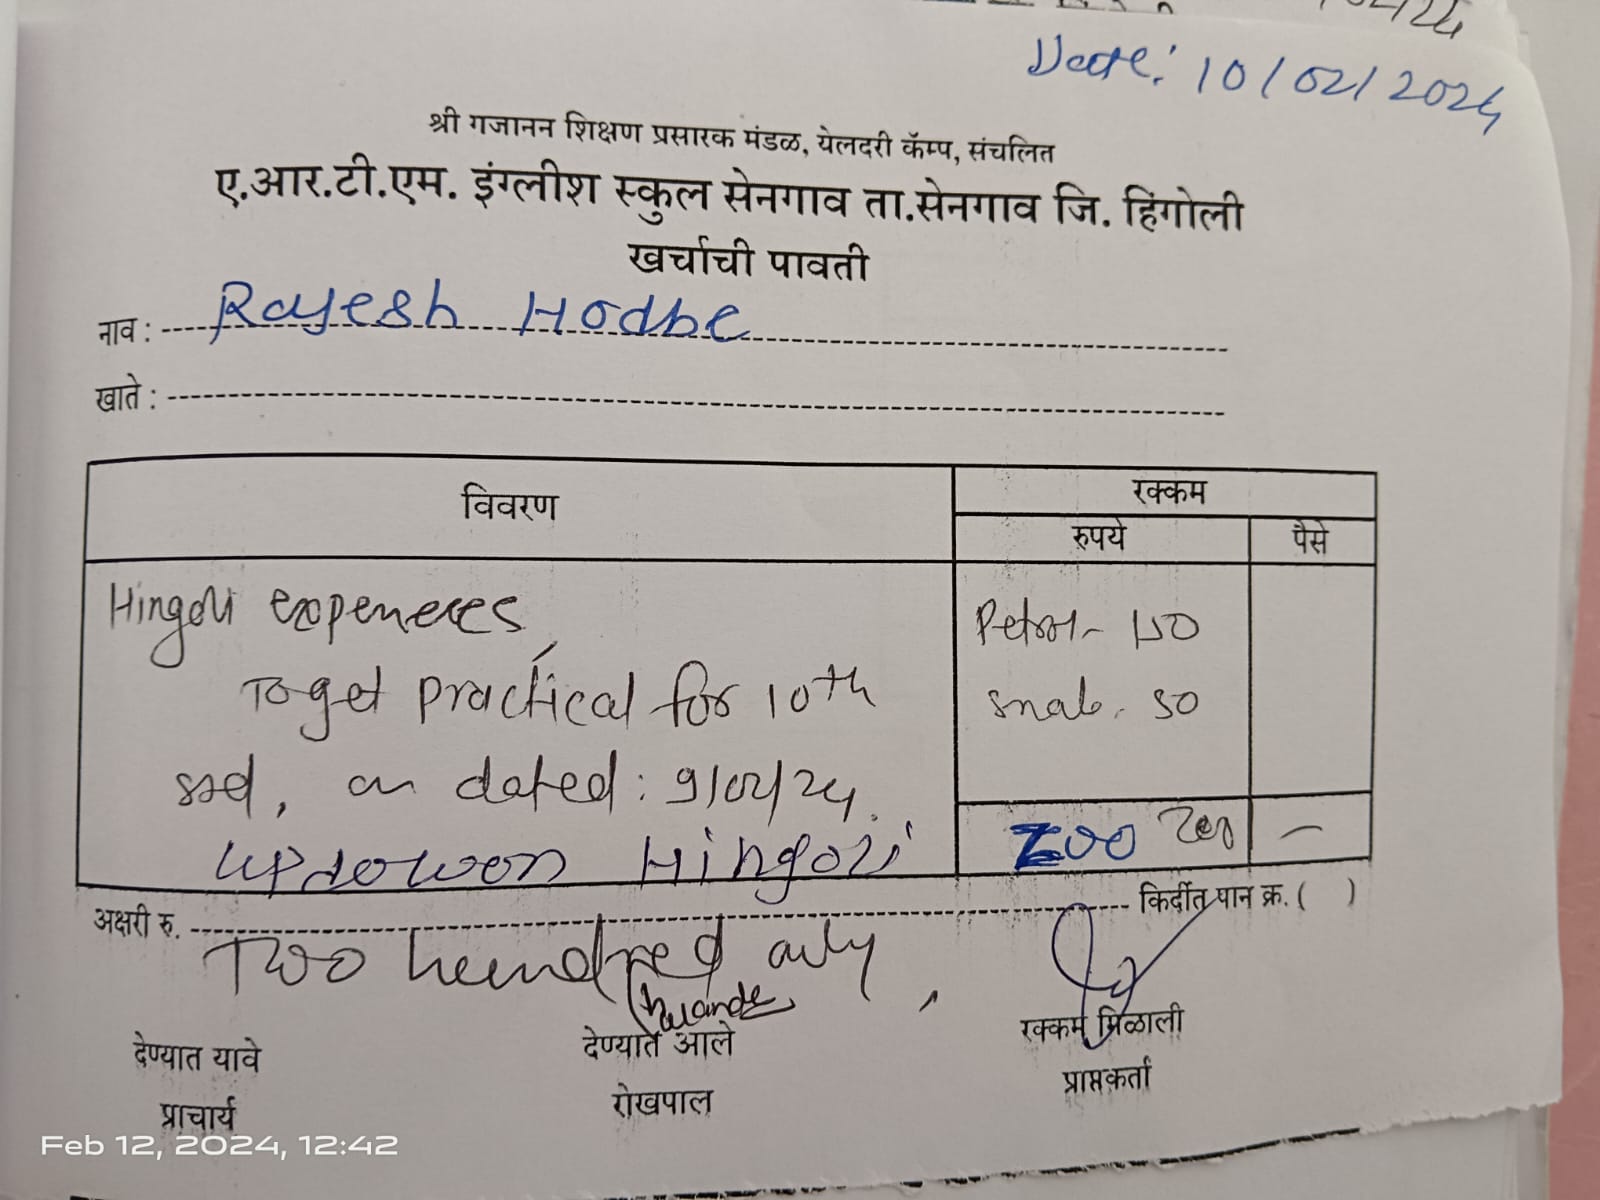 Date: 10/02/2024
श्री गजानन शिक्षण प्रसारक मंडळ, येलदरी कॅम्प, संचलित
ए.आर.टी.एम. इंग्लीश स्कुल सेनगाव ता.सेनगाव जि. हिंगोली
खर्चाची पावती
नाव : Rajesh Hodbe
खाते :
विवरण
रक्कम
रुपये
पैसे
Hingoli expeneces,
Petrol- 150
To get practical for 10th
50
on dated : 9/02/24.
updowon Hingoli
200
-
अक्षरी रु. किर्दीत पान क्र. ( )
Two hundred only,
देण्यात यावे
देण्यात आले
रक्कम मिळाली
प्राचार्य
रोखपाल
प्राप्तकर्ता
Feb 12, 2024, 12:42